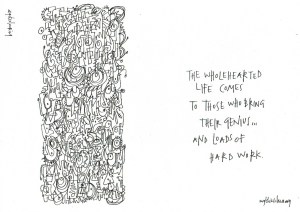 THE WHOLEHEARTED
LIFE COMES
TO THOSE WHO BRING
THEIR GENIUS...
AND LOADS OF
HARD WORK.